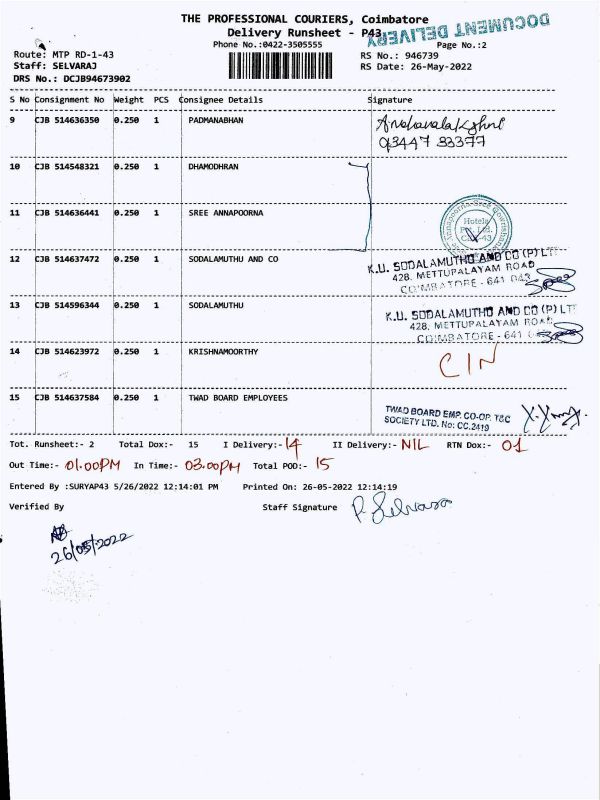 THE PROFESSIONAL COURIERS, Coimbatore
Delivery Runsheet - P43
DOCUMENT DELIVERY
Phone No.:0422-3505555
Page No.:2
Route: MTP RD-1-43
RS No.: 946739
Staff: SELVARAJ
RS Date: 26-May-2022
DRS No.: DCJB94673902
S No Consignment No Weight PCS Consignee Details Signature
9 CJB 514636350 0.250 1 PADMANABHAN
93447 33377
10 CJB 514548321 0.250 1 DHAMODHRAN
11 CJB 514636441 0.250 1 SREE ANNAPOORNA
Hotels
12 CJB 514637472 0.250 1 SODALAMUTHU AND CO
K.U. SODALAMUTHU AND CO (P) LT
428, METTUPALAYAM ROAD
COIMBATORE - 641 043
13 CJB 514596344 0.250 1 SODALAMUTHU
K.U. SODALAMUTHU AND CO (P) LT
428, METTUPALAYAM ROAD
COIMBATORE - 641
14 CJB 514623972 0.250 1 KRISHNAMOORTHY
CIN
15 CJB 514637584 0.250 1 TWAD BOARD EMPLOYEES
TWAD BOARD EMP. CO-OP. T&C
SOCIETY LTD. No: CC.2419
Tot. Runsheet:- 2 Total Dox:- 15 I Delivery:- 14 II Delivery:- NIL RTN Dox:- 01
Out Time:- 01.00PM In Time:- 03.00PM Total POD:- 15
Entered By :SURYAP43 5/26/2022 12:14:01 PM Printed On: 26-05-2022 12:14:19
Verified By Staff Signature P. Selvaraj
26/05/2022